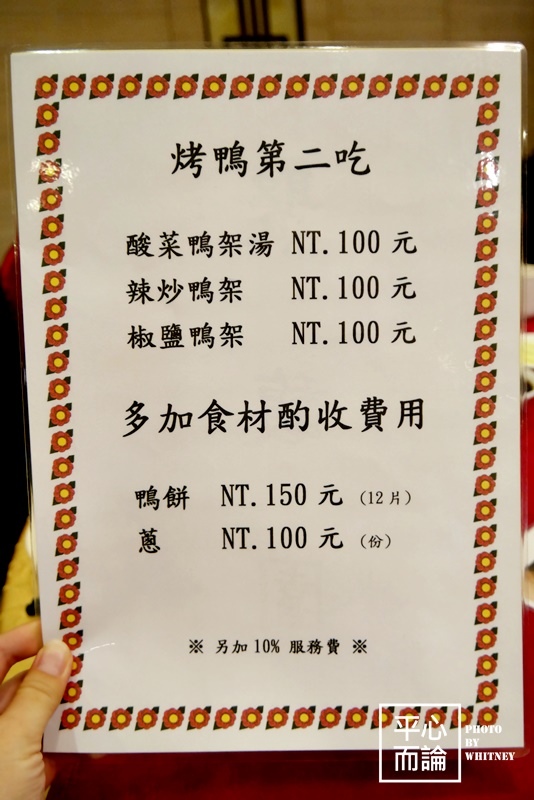 烤鴨第二吃
酸菜鴨架湯 NT.100 元
辣炒鴨架 NT.100 元
椒鹽鴨架 NT.100 元
多加食材酌收費用
鴨餅 NT.150 元 (12片)
蔥 NT.100 元 (份)
※ 另加 10% 服務費 ※
平心
而論
PHOTO
BY
WHITNEY